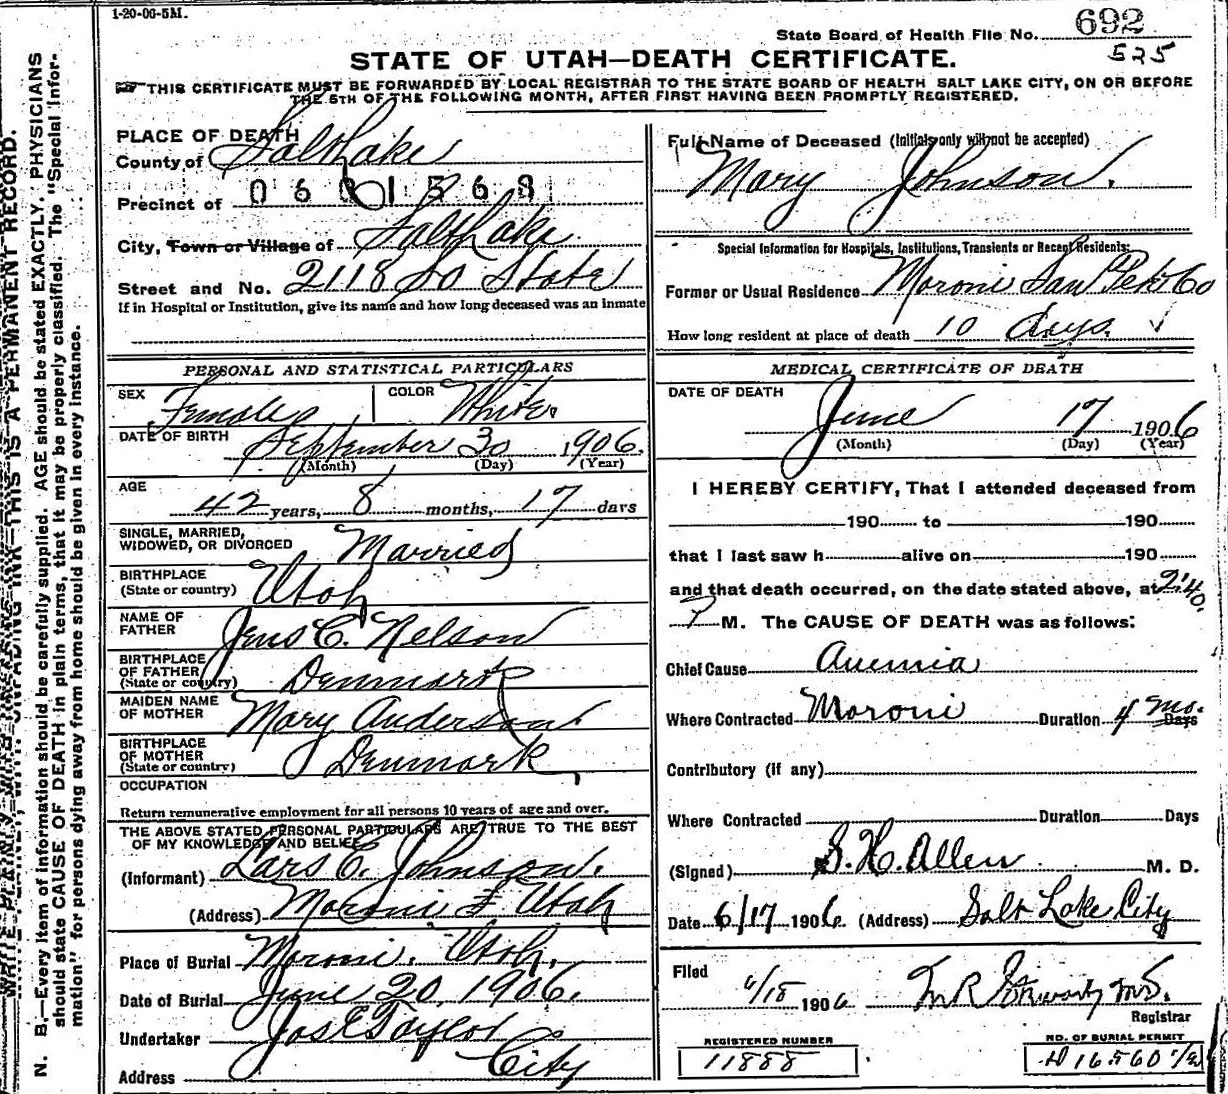 1-20-06-5M.
State Board of Health File No. 692
525
STATE OF UTAH—DEATH CERTIFICATE.
THIS CERTIFICATE MUST BE FORWARDED BY LOCAL REGISTRAR TO THE STATE BOARD OF HEALTH SALT LAKE CITY, ON OR BEFORE
THE 5TH OF THE FOLLOWING MONTH, AFTER FIRST HAVING BEEN PROMPTLY REGISTERED.
WRITE PLAINLY, WITH UNFADING INK—THIS IS A PERMANENT RECORD.
N. B.—Every item of information should be carefully supplied. AGE should be stated EXACTLY. PHYSICIANS
should state CAUSE OF DEATH in plain terms, that it may be properly classified. The "Special Infor-
mation" for persons dying away from home should be given in every instance.
PLACE OF DEATH
County of Salt Lake
Precinct of
City, Town or Village of Salt Lake
Street and No. 2118 So State
If in Hospital or Institution, give its name and how long deceased was an inmate
PERSONAL AND STATISTICAL PARTICULARS
SEX Female COLOR White
DATE OF BIRTH September 30 1906.
(Month) (Day) (Year)
AGE
42 years, 8 months, 17 days
SINGLE, MARRIED,
WIDOWED, OR DIVORCED Married
BIRTHPLACE
(State or country) Utah
NAME OF
FATHER Jens C. Nelson
BIRTHPLACE
OF FATHER
(State or country) Denmark
MAIDEN NAME
OF MOTHER Mary Anderson
BIRTHPLACE
OF MOTHER
(State or country) Denmark
OCCUPATION
Return remunerative employment for all persons 10 years of age and over.
THE ABOVE STATED PERSONAL PARTICULARS ARE TRUE TO THE BEST
OF MY KNOWLEDGE AND BELIEF
(Informant) Lars C. Johnson.
(Address) Moroni Utah
Place of Burial Moroni. Utah.
Date of Burial June 20, 1906.
Undertaker Jos E Taylor
Address City
Full Name of Deceased (Initials only will not be accepted)
Mary Johnson.
Special Information for Hospitals, Institutions, Transients or Recent Residents:
Former or Usual Residence Moroni San Pete Co
How long resident at place of death 10 days.
MEDICAL CERTIFICATE OF DEATH
DATE OF DEATH
June 17 1906
(Month) (Day) (Year)
I HEREBY CERTIFY, That I attended deceased from
190 to 190
that I last saw h alive on 190
and that death occurred, on the date stated above, at 2:40
P M. The CAUSE OF DEATH was as follows:
Chief Cause Anemia
Where Contracted Moroni Duration 4 mo. Days
Contributory (if any)
Where Contracted Duration Days
(Signed) S. H. Allen M. D.
Date 6/17 1906 (Address) Salt Lake City
Filed 6/18 1906 M.D.
Registrar
REGISTERED NUMBER
11888
NO. OF BURIAL PERMIT
16560 1/2